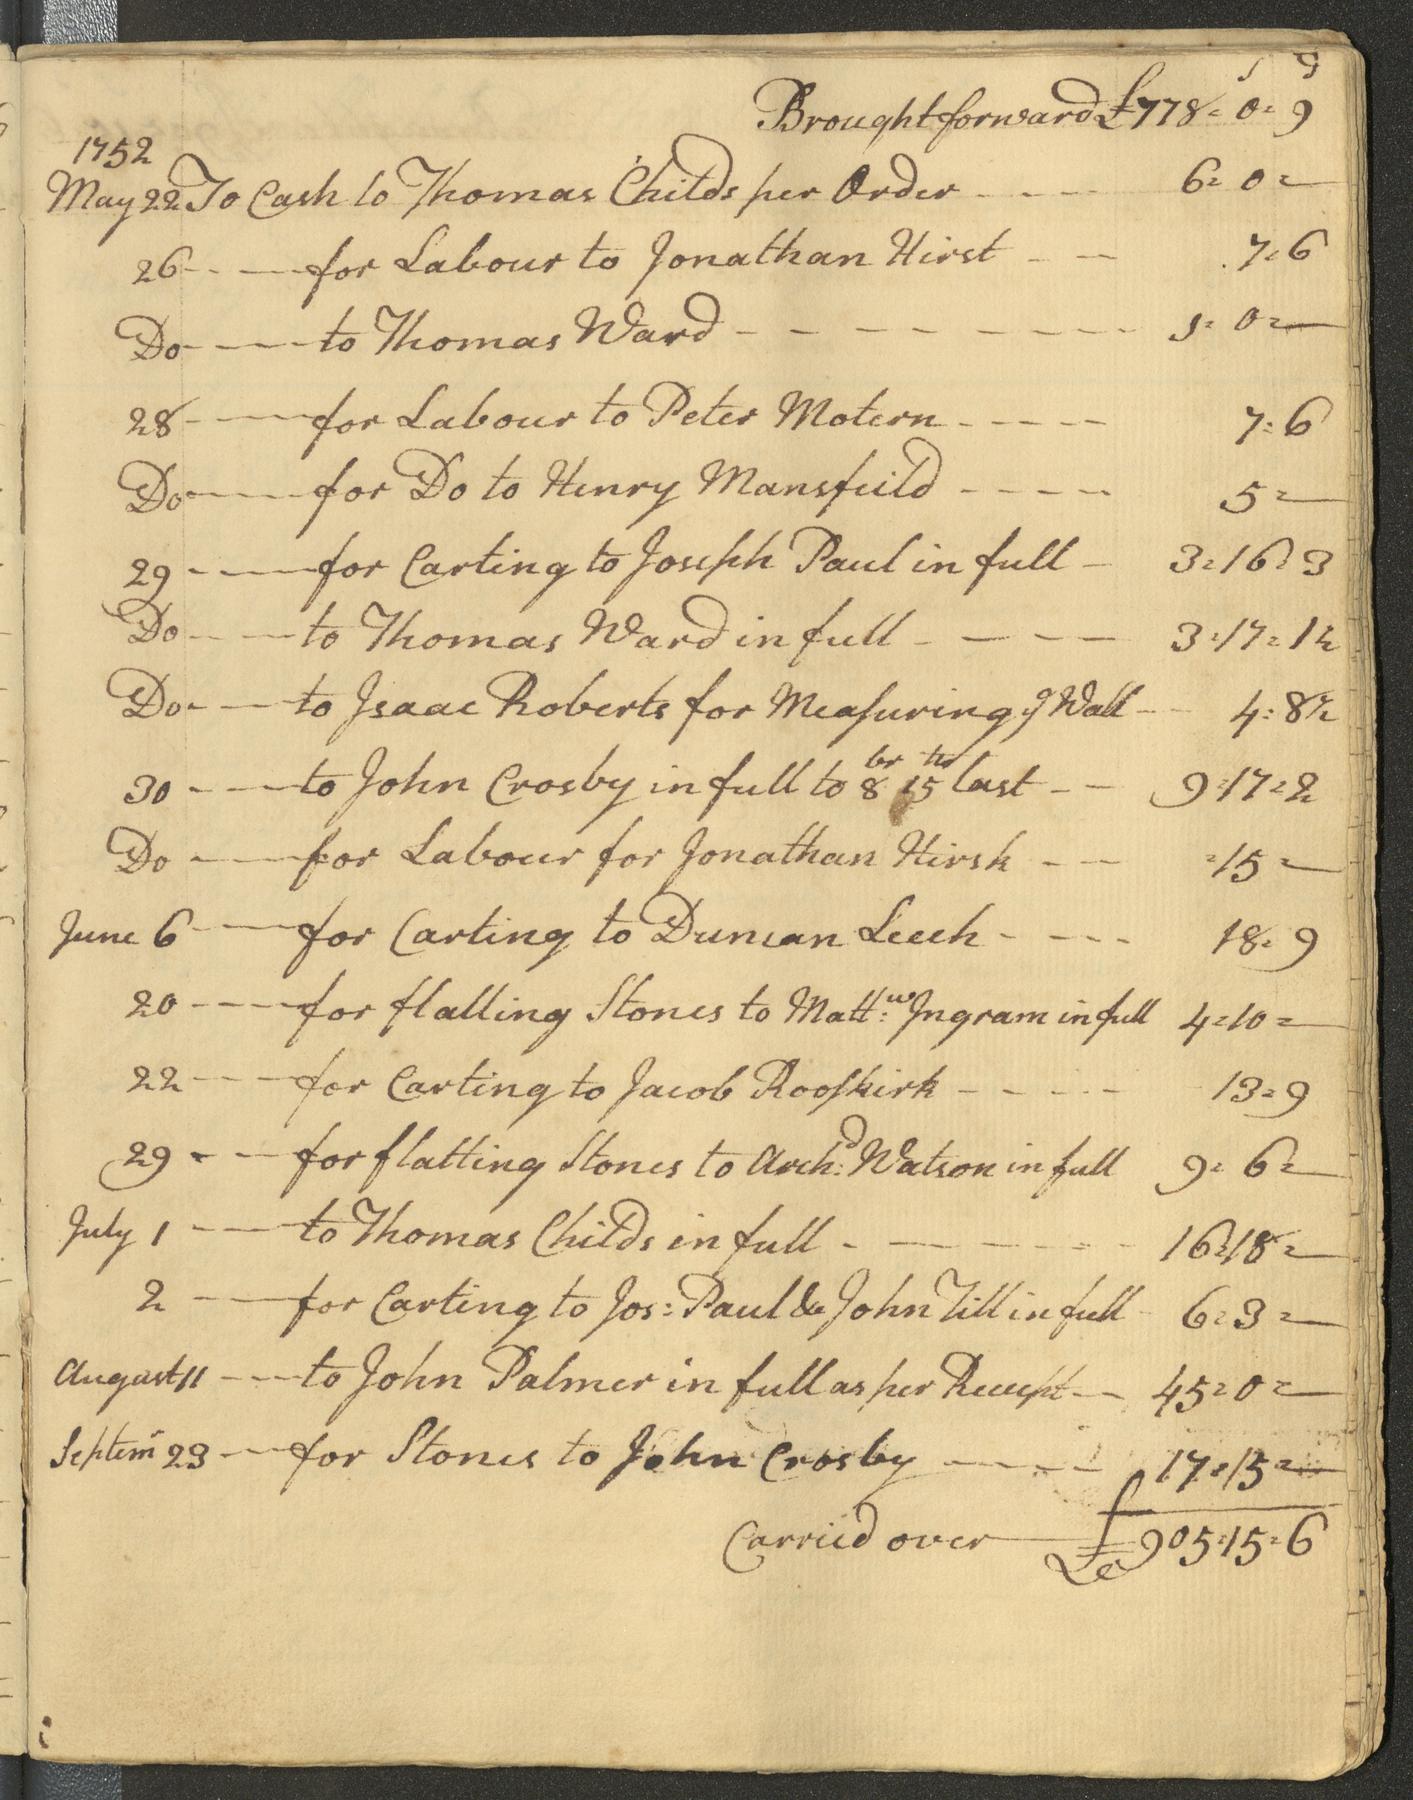 s d
Brought forward £778= 0= 9
1752
May 22 To Cash to Thomas Childs per Order - - - - 6= 0=—
26 - - — for Labour to Jonathan Hirst - - 7=6
Do - — to Thomas Ward - - - - - - - - 1= 0=—
28 - — for Labour to Peter Motern - - - - 7=6
Do - — for Do to Henry Mansfeild - - - - 5=—
29 - - — for Carting to Joseph Paul in full - 3=16=3
Do - - — to Thomas Ward in full - - - - 3=17=1½
Do - - — to Isaac Roberts for Measuring ye Wall - - 4=8½
30 - - — to John Crosby in full to 8br 15th last - - 9=17=2
Do - — for Labour for Jonathan Hirsh - - =15=—
June 6 - — for Carting to Duncan Leech - - - - 18=9
20 - - — for flatting Stones to Mattw: Ingram in full 4=10=—
22 - - — for Carting to Jacob Rooskirk - - - - - 13=9
29 - - — for flatting Stones to Archd: Watson in full 9= 6=—
July 1 - — to Thomas Childs in full - - - - - - 16=18=—
2 - — for Carting to Jos: Paul & John Till in full - 6=3=—
August 11 - - — to John Palmer in full as per Receipt - - 45=0=—
Septemr 23 - — for Stones to John Crosby - - - - 17=15=—
Carried over — £905=15=6